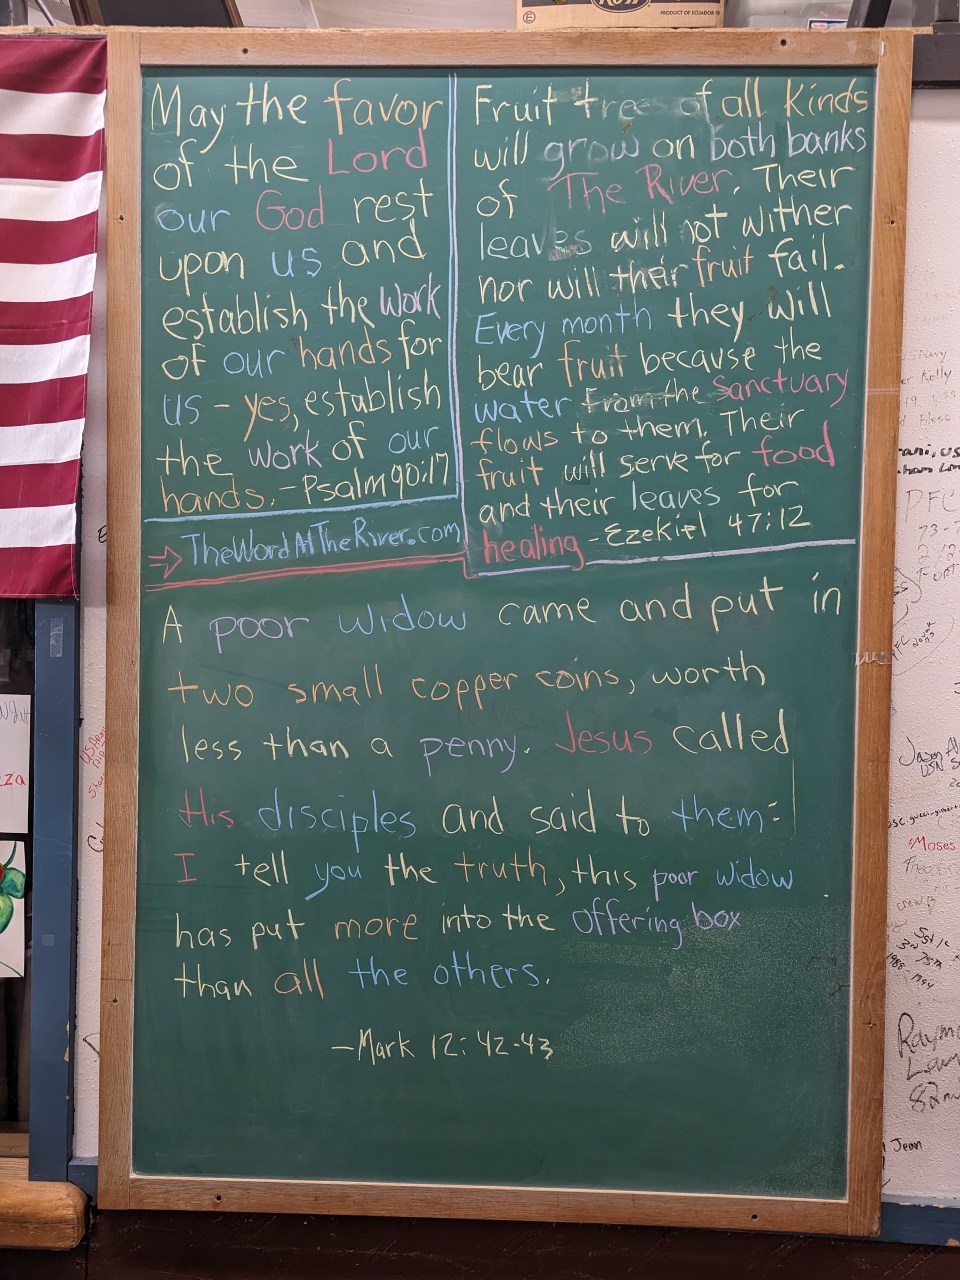 PRODUCT OF ECUADOR
May the favor
of the Lord
our God rest
upon us and
establish the work
of our hands for
us - yes, establish
the work of our
hands. - Psalm 90:17
→ TheWordAtTheRiver.com
Fruit trees of all kinds
will grow on both banks
of The River. Their
leaves will not wither
nor will their fruit fail.
Every month they will
bear fruit because the
water from the Sanctuary
flows to them. Their
fruit will serve for food
and their leaves for
healing - Ezekiel 47:12
A poor widow came and put in
two small copper coins, worth
less than a penny. Jesus called
His disciples and said to them:
I tell you the truth, this poor widow
has put more into the offering box
than all the others.
- Mark 12:42-43
Kelly
PFC
Jason
Moses
Raym
82n
Jean